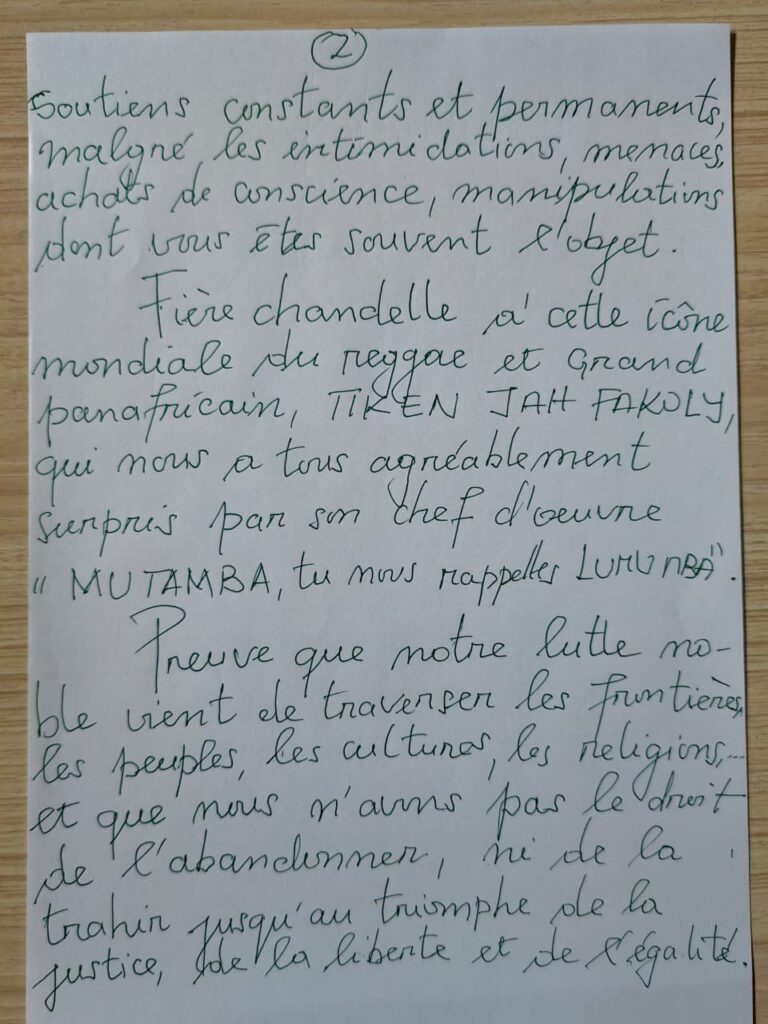 2
Soutiens constants et permanents,
malgré les intimidations, menaces,
achats de conscience, manipulations
dont vous êtes souvent l'objet.
Fière chandelle à cette icône
mondiale du reggae et Grand
panafricain, TIKEN JAH FAKOLY,
qui nous a tous agréablement
surpris par son chef d'oeuvre
"MUTAMBA, tu nous rappelles LUMUMBA".
Preuve que notre lutte no-
ble vient de traverser les frontières,
les peuples, les cultures, les religions,...
et que nous n'avons pas le droit
de l'abandonner, ni de la
trahir jusqu'au triomphe de la
justice, de la liberté et de l'égalité.